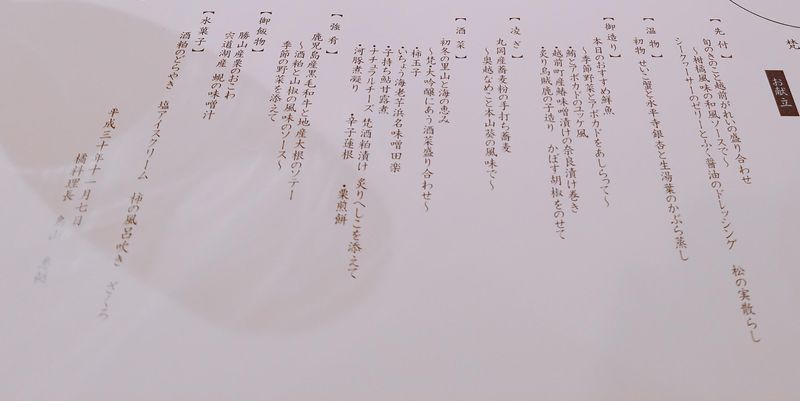 梵
お献立
【先付】
旬のきのこと越前がれいの盛り合わせ
～柑橘風味の和風ソースで～
シークヮーサーのゼリーとふく醤油のドレッシング 松の実散らし
【温物】
初物 せいこ蟹と永平寺銀杏と生湯葉のかぶら蒸し
【御造り】
本日のおすすめ鮮魚
～季節野菜とアボカドをあしらって～
・鮪とアボカドのユッケ風
・越前町産鰆味噌漬けの奈良漬け巻き
・炙り烏賊鹿の子造り かぼす胡椒をのせて
【凌ぎ】
丸岡産蕎麦粉の手打ち蕎麦
～奥越なめこと本山葵の風味で～
【酒菜】
初冬の里山と海の恵み
～梵大吟醸にあう酒菜盛り合わせ～
・柿玉子
・いちょう海老芋浜名味噌田楽
・子持ち鮎甘露煮
・ナチュラルチーズ 梵酒粕漬け 炙りへしこを添えて
・河豚煮凝り ・辛子蓮根 ・栗煎餅
【強肴】
鹿児島産黒毛和牛と地産大根のソテー
～酒粕と山椒の風味のソース～
季節の野菜を添えて
【御飯物】
勝山産栗のおこわ
宍道湖産 蜆の味噌汁
【水菓子】
酒粕のどらやき 塩アイスクリーム 柿の風呂吹き ざくろ
平成三十年十一月七日
橘料理長